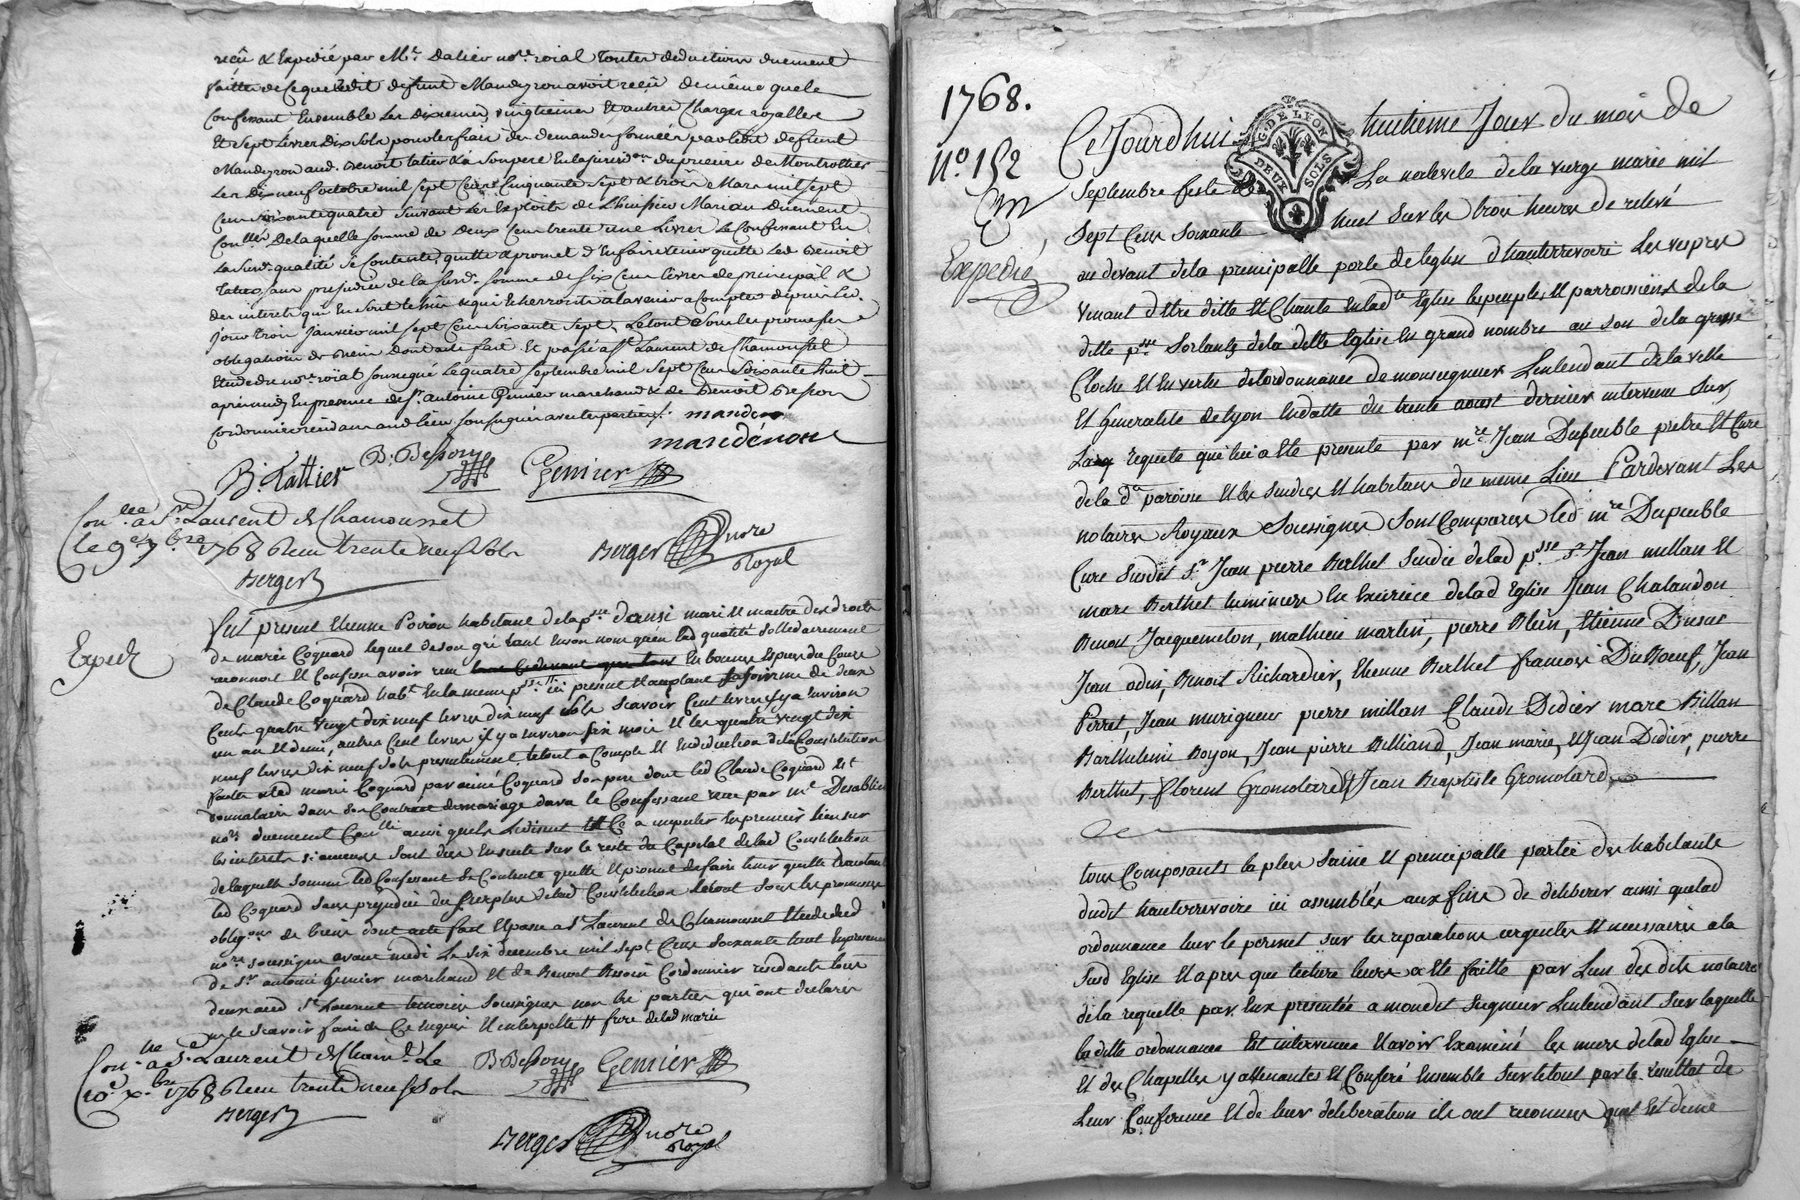 reçû & Expedié par Mr. Dalier nore. roial toutes deductions duement
faittes de Ce que ledit defunt Mandeyron avoit reçû de même que le
Confessant Ensemble les dixiemes, vingtiemes Et autres Charges royalles
Et Sept Livres Dix Sols pour les frais de demandes formées par ledit defunt
Mandeyron aud. Benoit tatier
les dix neuf octobre mil sept Cens Cinquante Sept & trois Mars mil sept
Cens soixante quatre Suivant les Exploits de Marian duement
Conllés De laquelle somme de Deux Cens trente une Livres le Confessant En
la Susd. qualité Se Contente, quitte & promet d'En faire tenir quitte led. Benoit
tatier sans prejudice de la Susd. somme de Six Cens livres de principal &
des interets qui En sont le &qui Echerront a l'avenir a Compter depuis Led.
jour trois Janvier mil sept Cens Soixante Sept. Le tout Sous les promesses
obligations de biens Dont acte fait Et passé a St. Laurent de Chamousset
Etude du nore. roial soussigné le quatre Septembre mil Sept Cens Soixante huit
après midy En presence de sr. antoine Genier marchand & de Benoit Besson
Cordonnier residans aud. lieu soussignés avec les parties.
mandenon
B. Tattier B. Besson Genier
Conllé a St Laurent de Chamousset
le 9e 7bre 1768 Reçu trente neuf sols
Berger
Berger nore Royal
Exped.
fut present Etienne Poiron habitant de la psse. mari & maitre des droits
de marie Coquard lequel de son gré tant En son nom qu'en lad. qualité Sollidairement
reconnoit Et Confesse avoir reçu En bonnes Especes du Cours
de Claude Coquard habt. En la meme psse. ici present & acceptant la somme de deux
Cents quatre vingt dix neuf livres dix neuf sols Scavoir Cent livres il y a Environ
un an & demi, autres Cent livres il y a Environ six mois & les quatre vingt dix
neuf livres dix neuf sols presentement le tout a Compte Et En deduction de la Constitution
faitte a lad. marie Coquard, par aimé Coquard son pere dont led. Claude Coquard Est
donnataire dans son Contrat de mariage dava le Confessant reçu par me Desablin
nore. duement Conllé ainsi quils Lont dit a imputer En premier lieu sur
les interets si aucuns sont dus Ensuite sur le reste du Capital de lad. Constitution
de laquelle somme led. Confessant Se Contente quitte & promet de faire tenir quitte
led. Coquard sans prejudice du Surplus de lad. Constitution le tout Sous les promesses
obligons. de biens dont acte fait & passé a St. Laurent de Chamousset Etude dud.
nore. soussigné avant midi Le six decembre mil Sept Cens Soixante huit En presence
de Sr. antoine Genier marchand Et de Benoit Besson Cordonnier residants tous
deux aud. St. Laurent temoins soussignés non les parties qui ont declaré
ne le Scavoir faire de Ce Enquis & interpellé // frere de lad. marie
Conllé a St. Laurent de Cham. Le
10e xbre 1768 Reçu trente neuf Sols
Berger
B. Besson Genier
Berger nore Royal
1768.
No. 152
Expedié
Ce Jourdhui huitieme Jour du mois de
G. DE LYON
DEUX SOLS
Septembre feste de La nativité de la vierge marie mil
Sept Cens Soixante huit Sur les trois heures de relevé
au devant de la principalle porte de leglise d'hauterrivoire les vepres
venant d'être dittes Et Chanté En lad.te Eglise les peuples & parroissiens de la
ditte psse. Sortants de la ditte Eglise En grand nombre au son de la grosse
Cloche Et En vertu de lordonnance de monseigneur Lintendant de la ville
Et Generalité de Lyon En datte du trente aoust dernier intervenue Sur
La requete qui lui a Eté presenté par mre. Jean Dupeuble prêtre Et Curé
de la d.e paroisse Et les Sindics Et habitans du meme Lieu Pardevant Les
notaires Royaux Soussignés Sont Comparus led. mre Dupeuble
Curé Susdit Sr. Jean pierre Berthet Sindic de lad. psse. Sr Jean millan Et
marc Berthet luminiers En Exercice de lad. Eglise Jean Chalandon
Benoit Jacquemelon, mathieu martin, pierre Blein, Etienne Dusuc
Jean odin, Benoit Richardier, Etienne Berthet françois DuBoeuf, Jean
Perret, Jean murigneux pierre millan Claude Didier marc Billan
Barthelemi Boyon, Jean pierre Billiand, Jean marie, & Jean Didier, pierre
Berthet, Florent Gromolard & Jean Baptiste Gromolard
tous Composants la plus Saine Et principalle partie des habitants
dudit hauterrivoire ici assemblés aux fins de deliberer ainsi que lad.
ordonnance leur le permet sur les reparations urgentes Et necessaires a la
Susd. Eglise Et apres que lecture leur a Eté faitte par Lun des dits notaires
de la requette par Eux presentée a mondit Seigneur Lintendant Sur laquelle
laditte ordonnance Est intervenue Et avoir Examiné les murs de lad. Eglise
Et des Chapelles y attenantes Et Conferé Ensemble Sur le tout par le resultat de
Leur Conference Et de leur deliberation ils ont reconnu quil Est